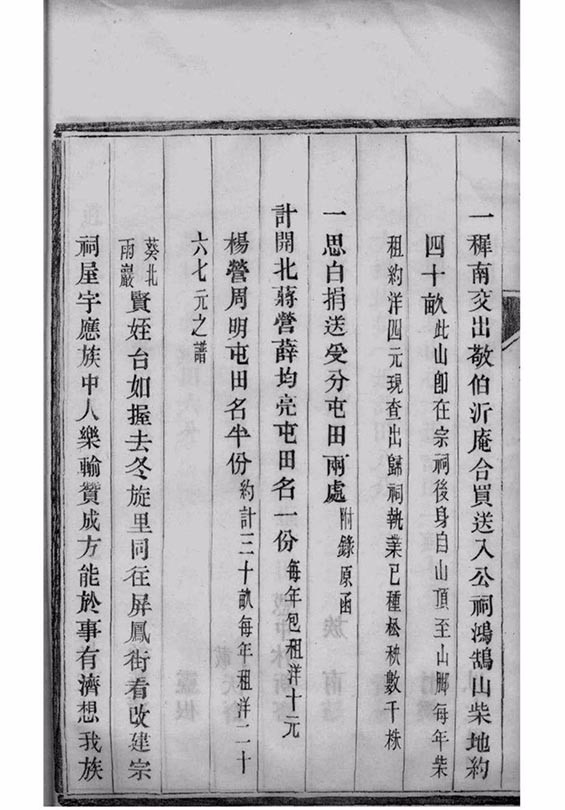 一穉南交出敬伯沂庵合買送入公祠鴻鵠山柴地約
四十畝此山卽在宗祠後身自山頂至山脚每年柴
租約洋四元現查出歸祠執業已種松秧數千株
一思白捐送受分屯田兩處附錄原函
計開北蔣營薛均亮屯田名一份每年包租洋十元
楊營周明屯田名半份約計三十畝每年租洋二十
六七元之譜
葵北
雨巖賢姪台如握去冬旋里同往屏鳳街看改建宗
祠屋宇應族中人樂輸贊成方能於事有濟想我族